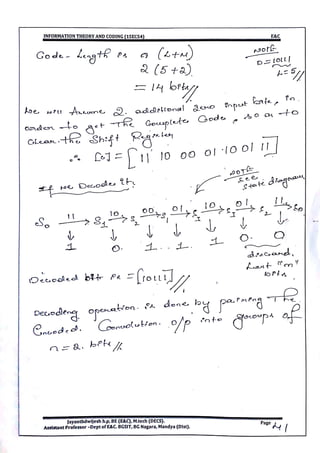 INFORMATION THEORY AND CODING (15EC54) E&C
Code - Length is n (L+M)
NOTE
D=10111
L=5
2 (5+2).
= 14 bits
we will Assume 2 additional zero input bits, in
order to get the Complete Code, so as to
Clear the Shift Register
∴ [c] = [11 10 00 01 10 01 11]
If we Decode it.
NOTE
See
State diagram
S0 11 → S1 10 → 00 → 01 → 10 → 01 → 11 → S0
↓ ↓ ↓ ↓ ↓ ↓ ↓
1 0. 1. 1. 1 0. 0
discard
Last "m"
bits
Decoded bit is = [10111]
Decoding operation is done by parsing the
Encoded Convolution o/p into groups of
n = 2 bits
Jayanthdwijesh h.p, BE (E&C), M.tech (DECS).
Assistant Professor - Dept of E&C, BGSIT, BG Nagara, Mandya (Dist).
Page 41